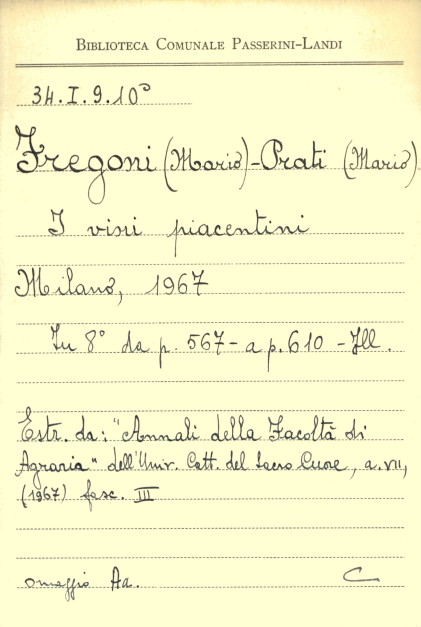 BIBLIOTECA COMUNALE PASSERINI-LANDI
34.I.9.10°
Fregoni (Mario)-Prati (Mario)
I vini piacentini
Milano, 1967
In 8° da p. 567- a p. 610 - Ill.
Estr. da: "Annali della Facoltà di
Agraria" dell'Univ. Catt. del Sacro Cuore, a. VII,
(1967) fasc. III
omaggio Aa. C